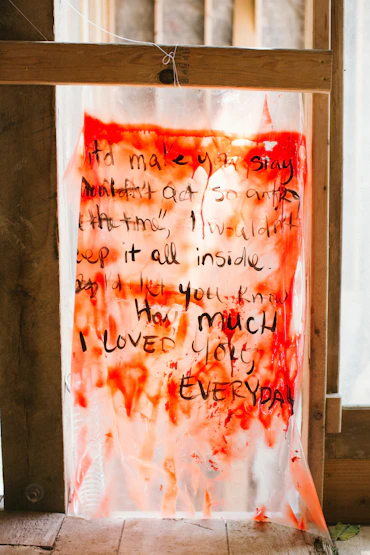 it'd make you stay
wouldn't act so
the time", I wouldn't
keep it all inside.
let you know
How much
I LOVED YOU,
EVERYDAY